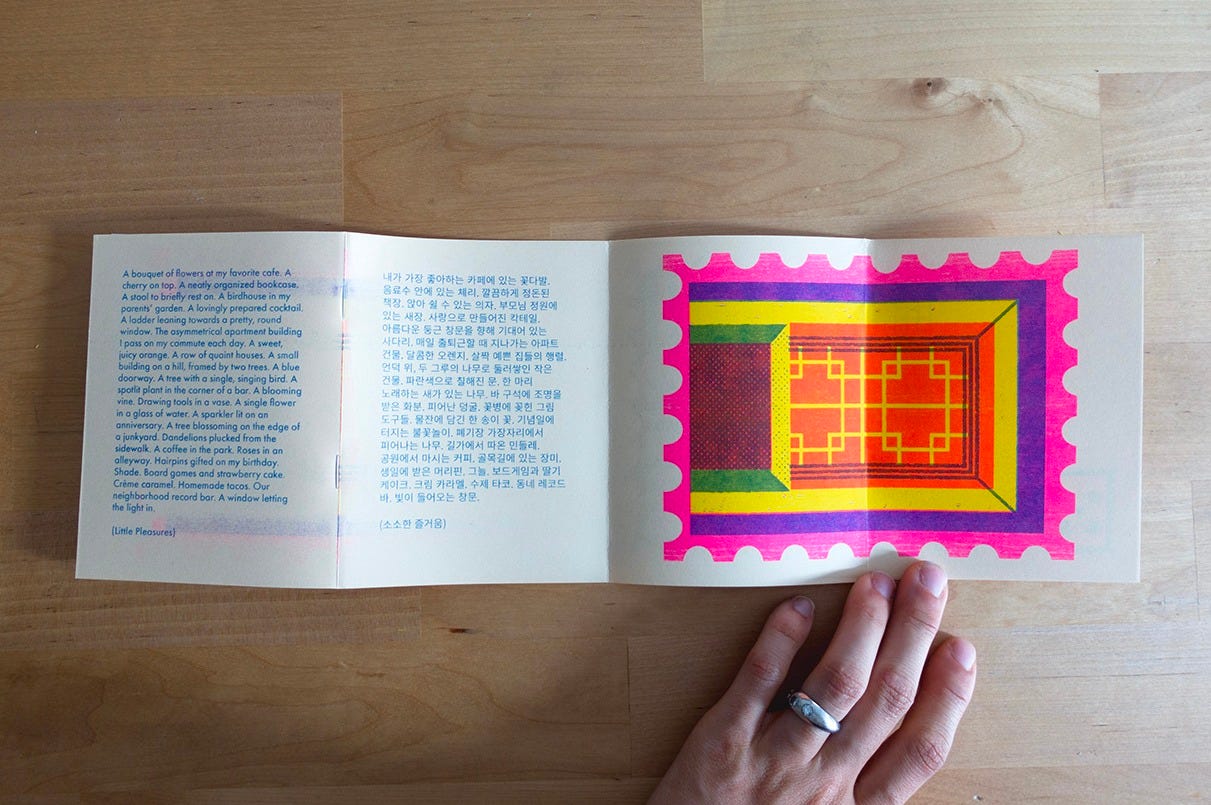 A bouquet of flowers at my favorite cafe. A
cherry on top. A neatly organized bookcase.
A stool to briefly rest on. A birdhouse in my
parents’ garden. A lovingly prepared cocktail.
A ladder leaning towards a pretty, round
window. The asymmetrical apartment building
I pass on my commute each day. A sweet,
juicy orange. A row of quaint houses. A small
building on a hill, framed by two trees. A blue
doorway. A tree with a single, singing bird. A
spotlit plant in the corner of a bar. A blooming
vine. Drawing tools in a vase. A single flower
in a glass of water. A sparkler lit on an
anniversary. A tree blossoming on the edge of
a junkyard. Dandelions plucked from the
sidewalk. A coffee in the park. Roses in an
alleyway. Hairpins gifted on my birthday.
Shade. Board games and strawberry cake.
Crème caramel. Homemade tacos. Our
neighborhood record bar. A window letting
the light in.
(Little Pleasures)
내가 가장 좋아하는 카페에 있는 꽃다발,
음료수 안에 있는 체리, 깔끔하게 정돈된
책장, 앉아 쉴 수 있는 의자, 부모님 정원에
있는 새장, 사랑으로 만들어진 칵테일,
아름다운 둥근 창문을 향해 기대어 있는
사다리, 매일 출퇴근할 때 지나가는 아파트
건물, 달콤한 오렌지, 살짝 예쁜 집들의 행렬,
언덕 위, 두 그루의 나무로 둘러쌓인 작은
건물, 파란색으로 칠해진 문, 한 마리
노래하는 새가 있는 나무, 바 구석에 조명을
받은 화분, 피어난 덩굴, 꽃병에 꽂힌 그림
도구들, 물잔에 담긴 한 송이 꽃, 기념일에
터지는 불꽃놀이, 폐기장 가장자리에서
피어나는 나무, 길가에서 따온 민들레,
공원에서 마시는 커피, 골목길에 있는 장미,
생일에 받은 머리핀, 그늘, 보드게임과 딸기
케이크, 크림 카라멜, 수제 타코, 동네 레코드
바, 빛이 들어오는 창문.
(소소한 즐거움)